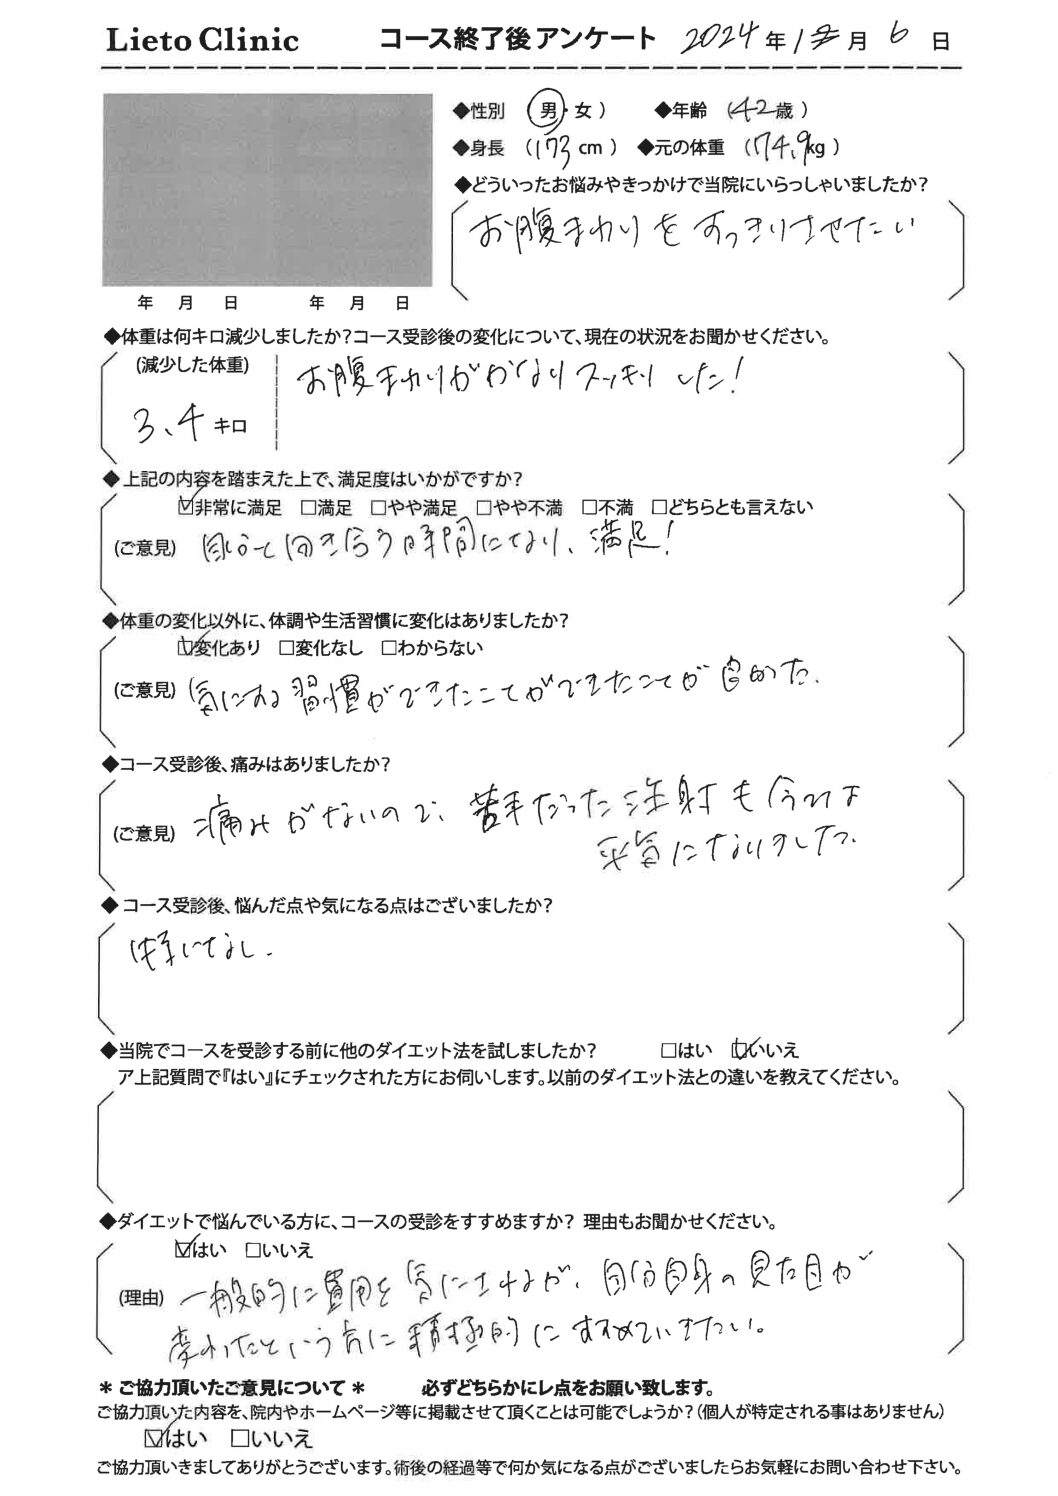 Lieto Clinic コース終了後アンケート 2024年1月6日
◆性別 (男・女) ◆年齢 (42歳)
◆身長 (173cm) ◆元の体重 (74.9kg)
◆どういったお悩みやきっかけで当院にいらっしゃいましたか?
お腹まわりをすっきりさせたい
年 月 日 年 月 日
◆体重は何キロ減少しましたか?コース受診後の変化について、現在の状況をお聞かせください。
(減少した体重)
3.4キロ
お腹まわりがかなりスッキリした!
◆上記の内容を踏まえた上で、満足度はいかがですか?
☑非常に満足 □満足 □やや満足 □やや不満 □不満 □どちらとも言えない
(ご意見) 自分と向き合う時間になり、満足!
◆体重の変化以外に、体調や生活習慣に変化はありましたか?
☑変化あり □変化なし □わからない
(ご意見) 気にする習慣ができたことができたことが良かった.
◆コース受診後、痛みはありましたか?
(ご意見) 痛みがないので、苦手だった注射も今では
平気になりました.
◆コース受診後、悩んだ点や気になる点はございましたか?
特になし.
◆当院でコースを受診する前に他のダイエット法を試しましたか? □はい ☑いいえ
ア上記質問で『はい』にチェックされた方にお伺いします。以前のダイエット法との違いを教えてください。
◆ダイエットで悩んでいる方に、コースの受診をすすめますか? 理由もお聞かせください。
☑はい □いいえ
(理由) 一般的に費用を気にされるが、自分自身の見た目が
変わったという方に積極的にすすめていきたい。
＊ご協力頂いたご意見について＊ 必ずどちらかにレ点をお願い致します。
ご協力頂いた内容を、院内やホームページ等に掲載させて頂くことは可能でしょうか?(個人が特定される事はありません)
☑はい □いいえ
ご協力頂いきましてありがとうございます。術後の経過等で何か気になる点がございましたらお気軽にお問い合わせ下さい。